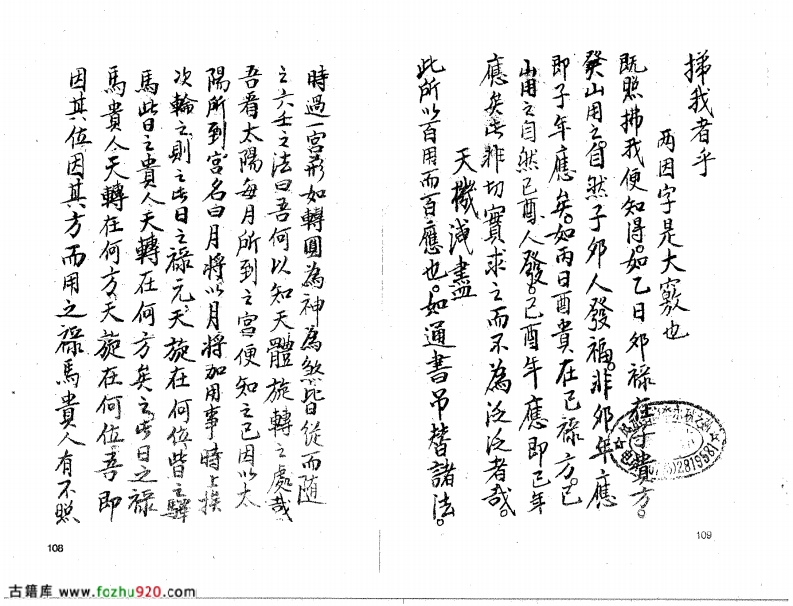 時過一宮形如轉圓為神為煞皆從而隨
之六壬之法曰吾何以知天體旋轉之處哉
吾看太陽每月所到之宮便知之已因以太
陽所到宮名曰月將以月將加用事時上挨
次輪之則之此日之祿元天旋在何位皆之驛
馬此日之貴人天轉在何方矣之此日之祿
馬貴人天轉在何方天旋在何位吾即
因其位因其方而用之祿馬貴人有不照
108
拂我者乎
两因字是大竅也
既照拂我便知得。如乙日卯祿在子貴方。
癸山用之自然子卯人發福。非卯年應
即子年應矣。如丙日酉貴在巳祿方。巳
山用之自然巳酉人發。巳酉年應即巳年
應矣此非切實求之而不為泛泛者哉。
天機洩盡
此所以百用而百應也。如通書吊替諸法。
109
古籍库 www.fozhu920.com